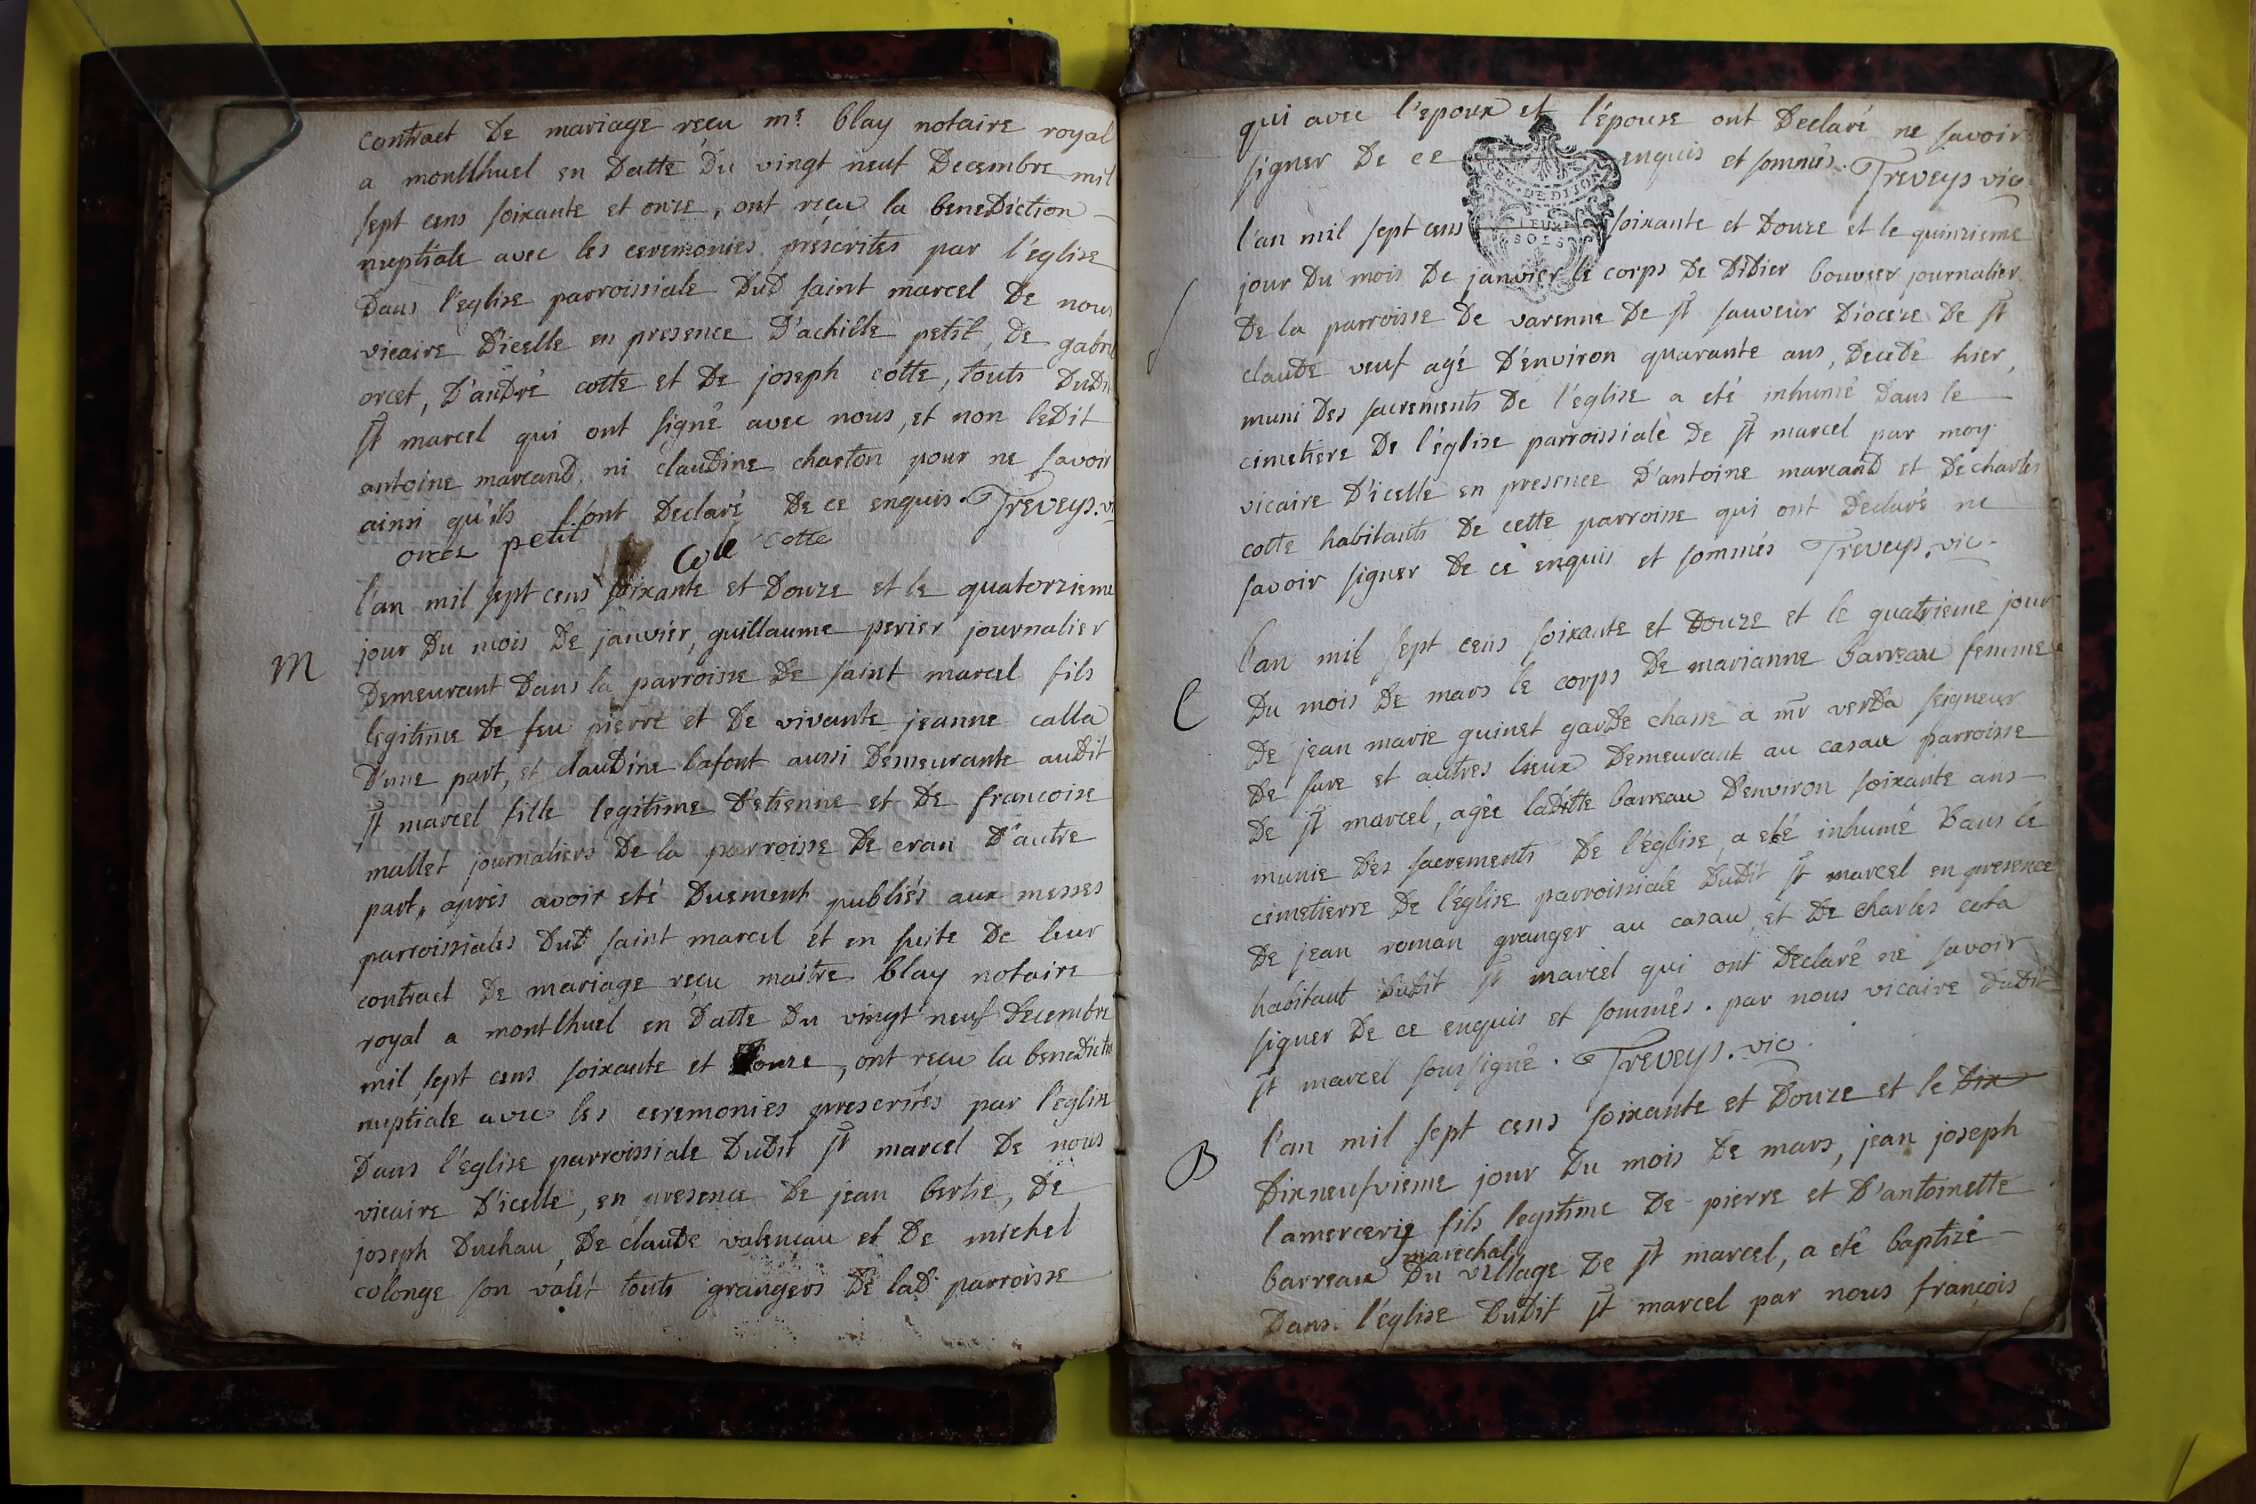 contract de mariage reçu me. blay notaire royal
a montlhuel en datte du vingt neuf decembre mil
sept cens soixante et onze, ont reçu la benediction
nuptiale avec les ceremonies prescrites par l'église
dans l'eglise parroissiale dud saint marcel de nous
vicaire d'icelle en presence d'achille petit, de gabri
orcet, d'andré cotte et de joseph cotte, touts dudi
st marcel qui ont signé avec nous, et non ledit
antoine marcand, ni claudine chaston pour ne savoir
ainsi qu'ils l'ont declaré de ce enquis. Treveys. vi
orcet petit cote cotte
l'an mil sept cens soixante et douze et le quatorzieme
M
jour du mois de janvier, guillaume perier journalier
demeurant dans la parroisse de saint marcel fils
legitime de feu pierre et de vivante jeanne calla
d'une part, et claudine lafont aussi demeurante audit
st marcel fille legitime d'etienne et de francoise
mallet journaliers de la parroisse de cran d'autre
part, après avoir eté duement publiés aux messes
parroissiales dud saint marcel et en suite de leur
contract de mariage reçu maitre blay notaire
royal a montlhuel en datte du vingt neuf decembre
mil sept cens soixante et onze, ont recu la benedictio
nuptiale avec les ceremonies prescrites par l'eglise
dans l'église parroissiale dudit st marcel de nous
vicaire d'icelle, en presence de jean berlie, de
joseph duchau, de claude valencau et de michel
colonge son valet touts grangers de lad parroisse
qui avec l'epoux et l'épouse ont declaré ne savoir
signer de ce enquis et sommés. Treveys vic
EN. DE DIJON
DEUX
SOLS
l'an mil sept cens soixante et douze et le quinzieme
S
jour du mois de janvier le corps de didier bouvier journalier
de la parroisse de varenne de st sauveur diocese de st
claude veuf agé d'environ quarante ans, decedé hier,
muni des sacrements de l'église a eté inhumé dans le
cimetiere de l'église parroissiale de st marcel par moy
vicaire d'icelle en presence d'antoine marcand et de charles
cotte habitants de cette parroisse qui ont declaré ne
savoir signer de ce enquis et sommés Treveys. vic.
l'an mil sept cens soixante et douze et le quatrieme jour
C
du mois de mars le corps de marianne barreau femme
de jean marie guinet garde chasse à mr verda seigneur
de sure et autres lieux demeurant au casau parroisse
de st marcel, agée ladite barreau d'environ soixante ans
munie des sacrements de l'église, a eté inhumé dans le
cimetierre de l'église parroissiale dudit st marcel en presence
de jean roman granger au casau, et de charles cota
habitant dudit st marcel qui ont declaré ne savoir
signer de ce enquis et sommés. par nous vicaire dudit
st marcel soussigné. Treveys. vic.
l'an mil sept cens soixante et douze et le dix
B
dixneufvieme jour du mois de mars, jean joseph
lamercerie fils legitime de pierre et d'antoinette
marechal
barreau du village de st marcel, a eté baptizé
dans l'église dudit st marcel par nous françois